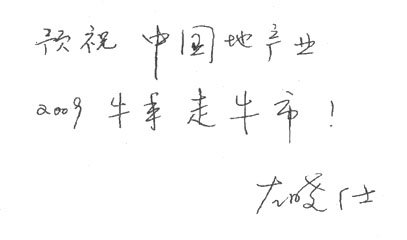 预祝中国地产业
2009牛年走牛市！